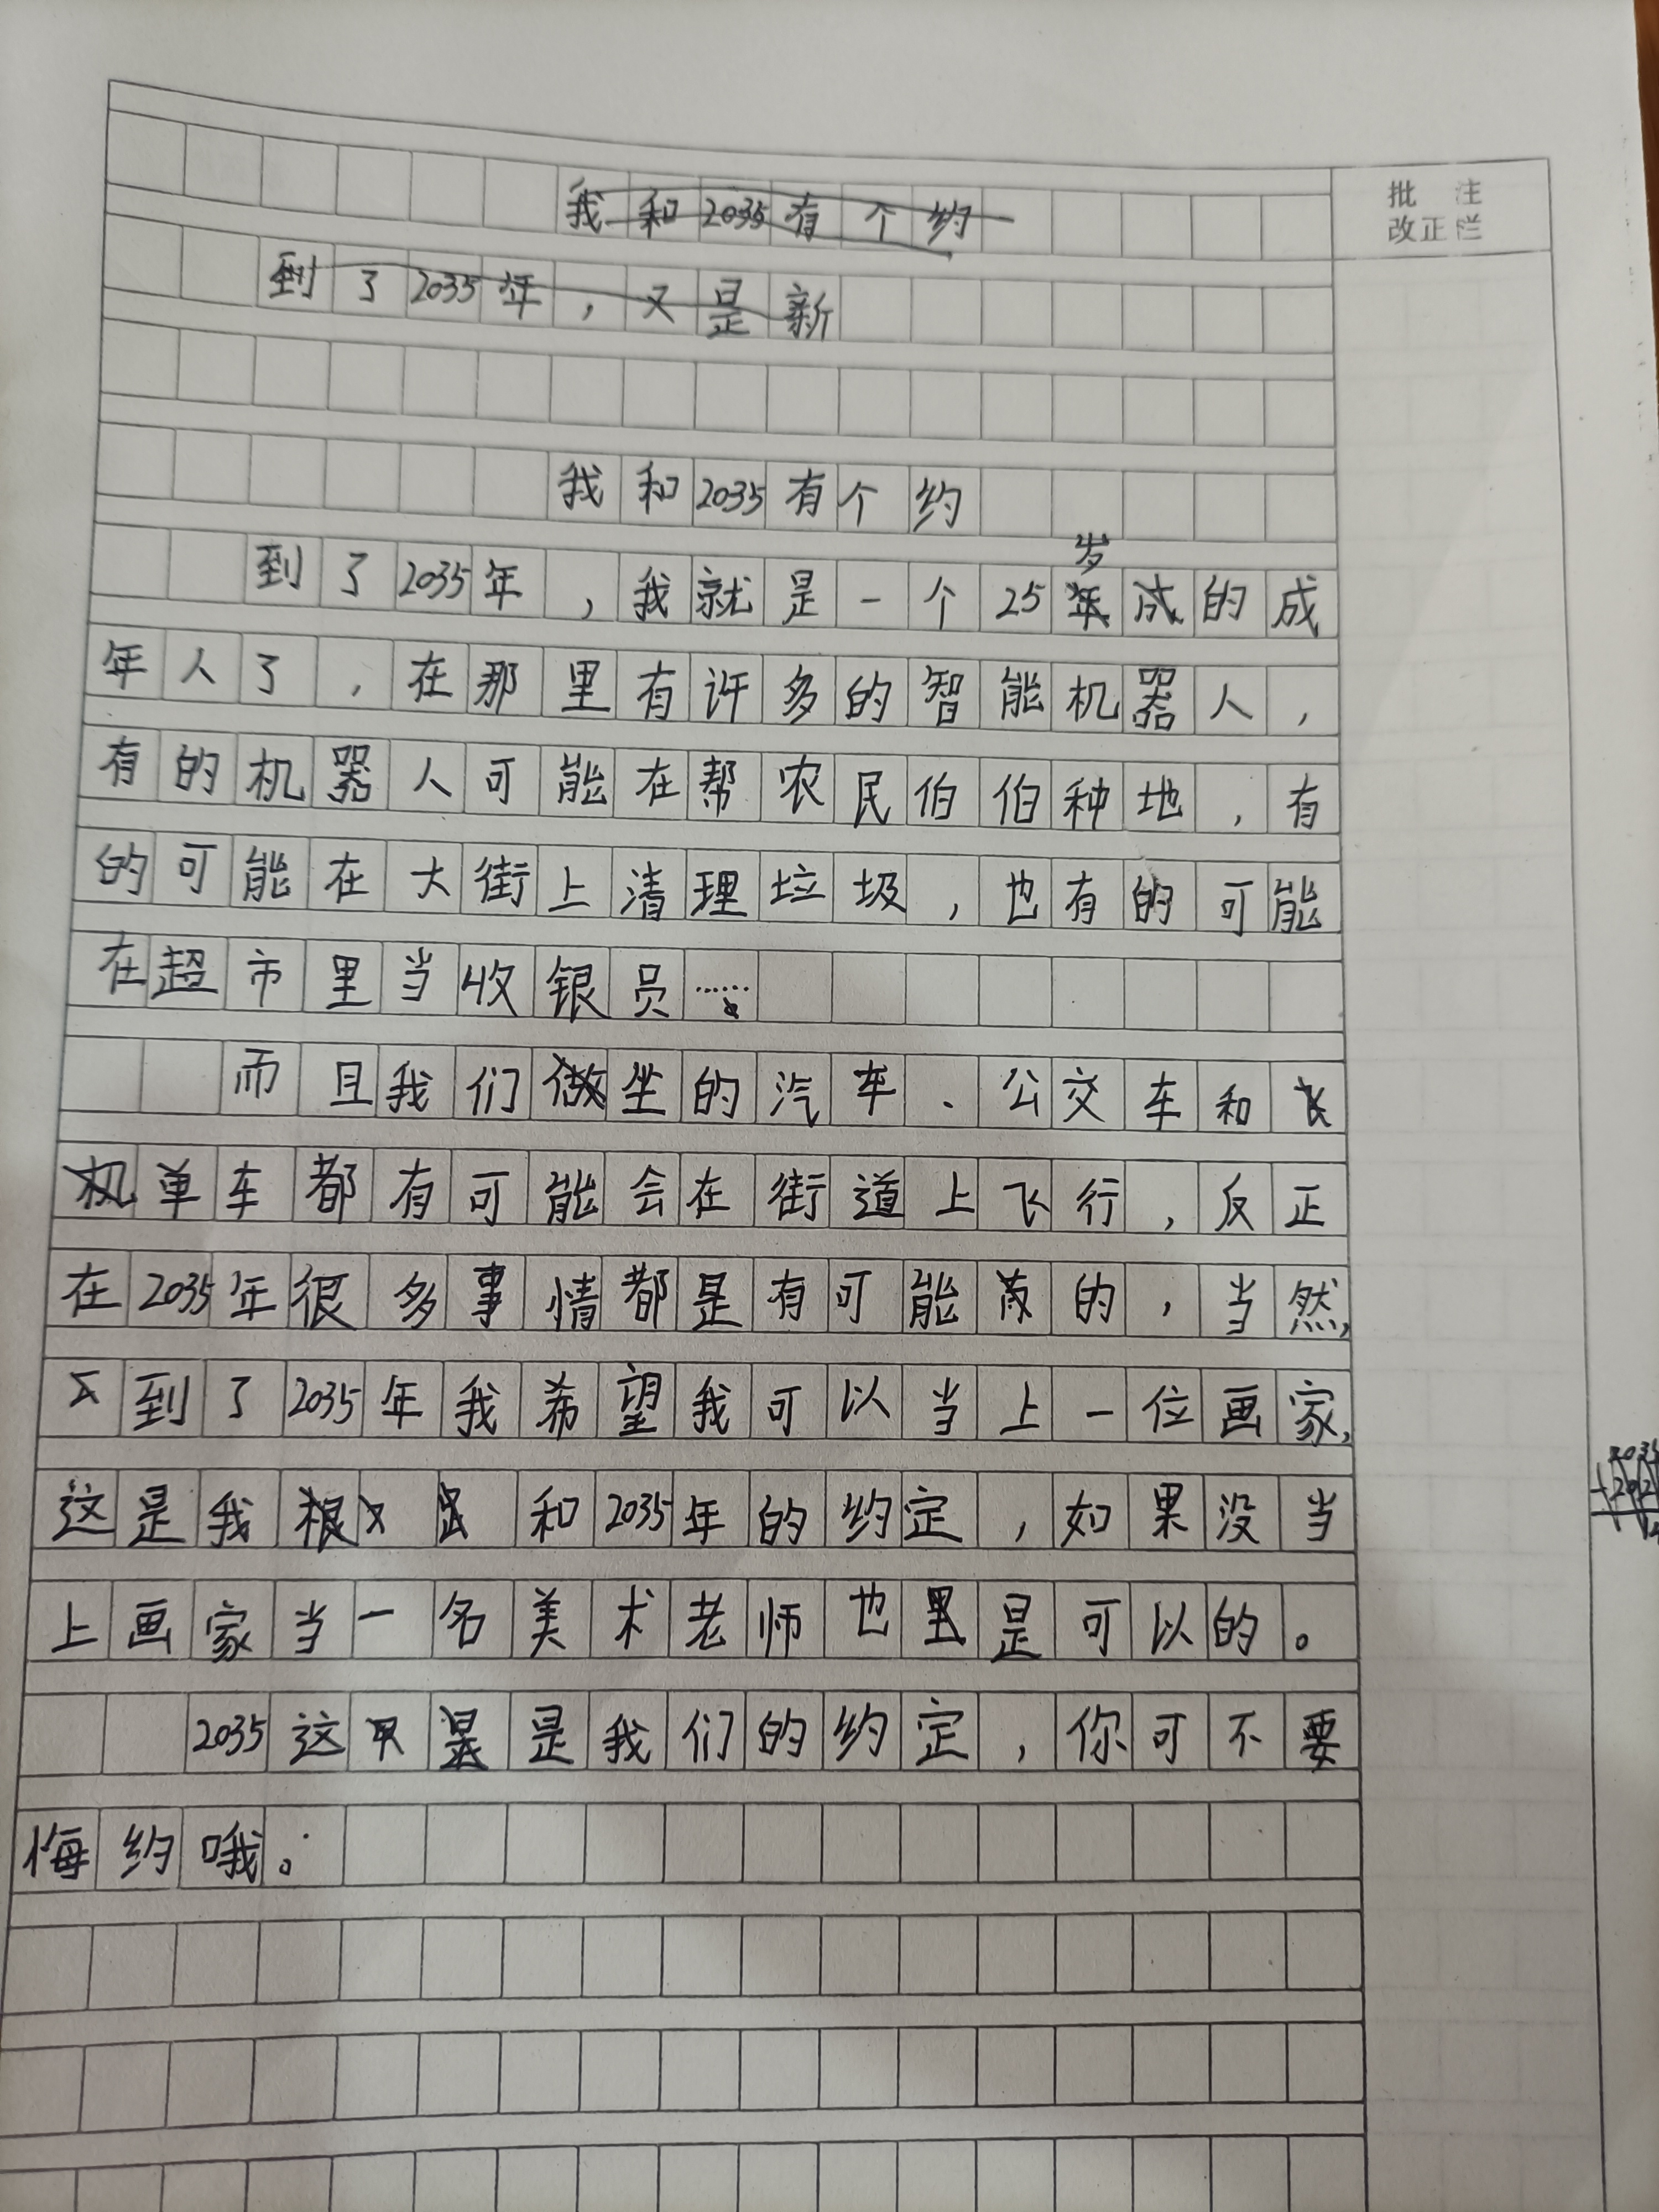 批 注
改正栏
我和2035有个约
到了2035年，又是新
我和2035有个约
岁
到了2035年，我就是一个25年成的成
年人了，在那里有许多的智能机器人，
有的机器人可能在帮农民伯伯种地，有
的可能在大街上清理垃圾，也有的可能
在超市里当收银员……
而且我们做坐的汽车、公交车和飞
机单车都有可能会在街道上飞行，反正
在2035年很多事情都是有可能的，当然，
到了2035年我希望我可以当上一位画家，
这是我和2035年的约定，如果没当
上画家当一名美术老师也是可以的。
2035这是我们的约定，你可不要
悔约哦。